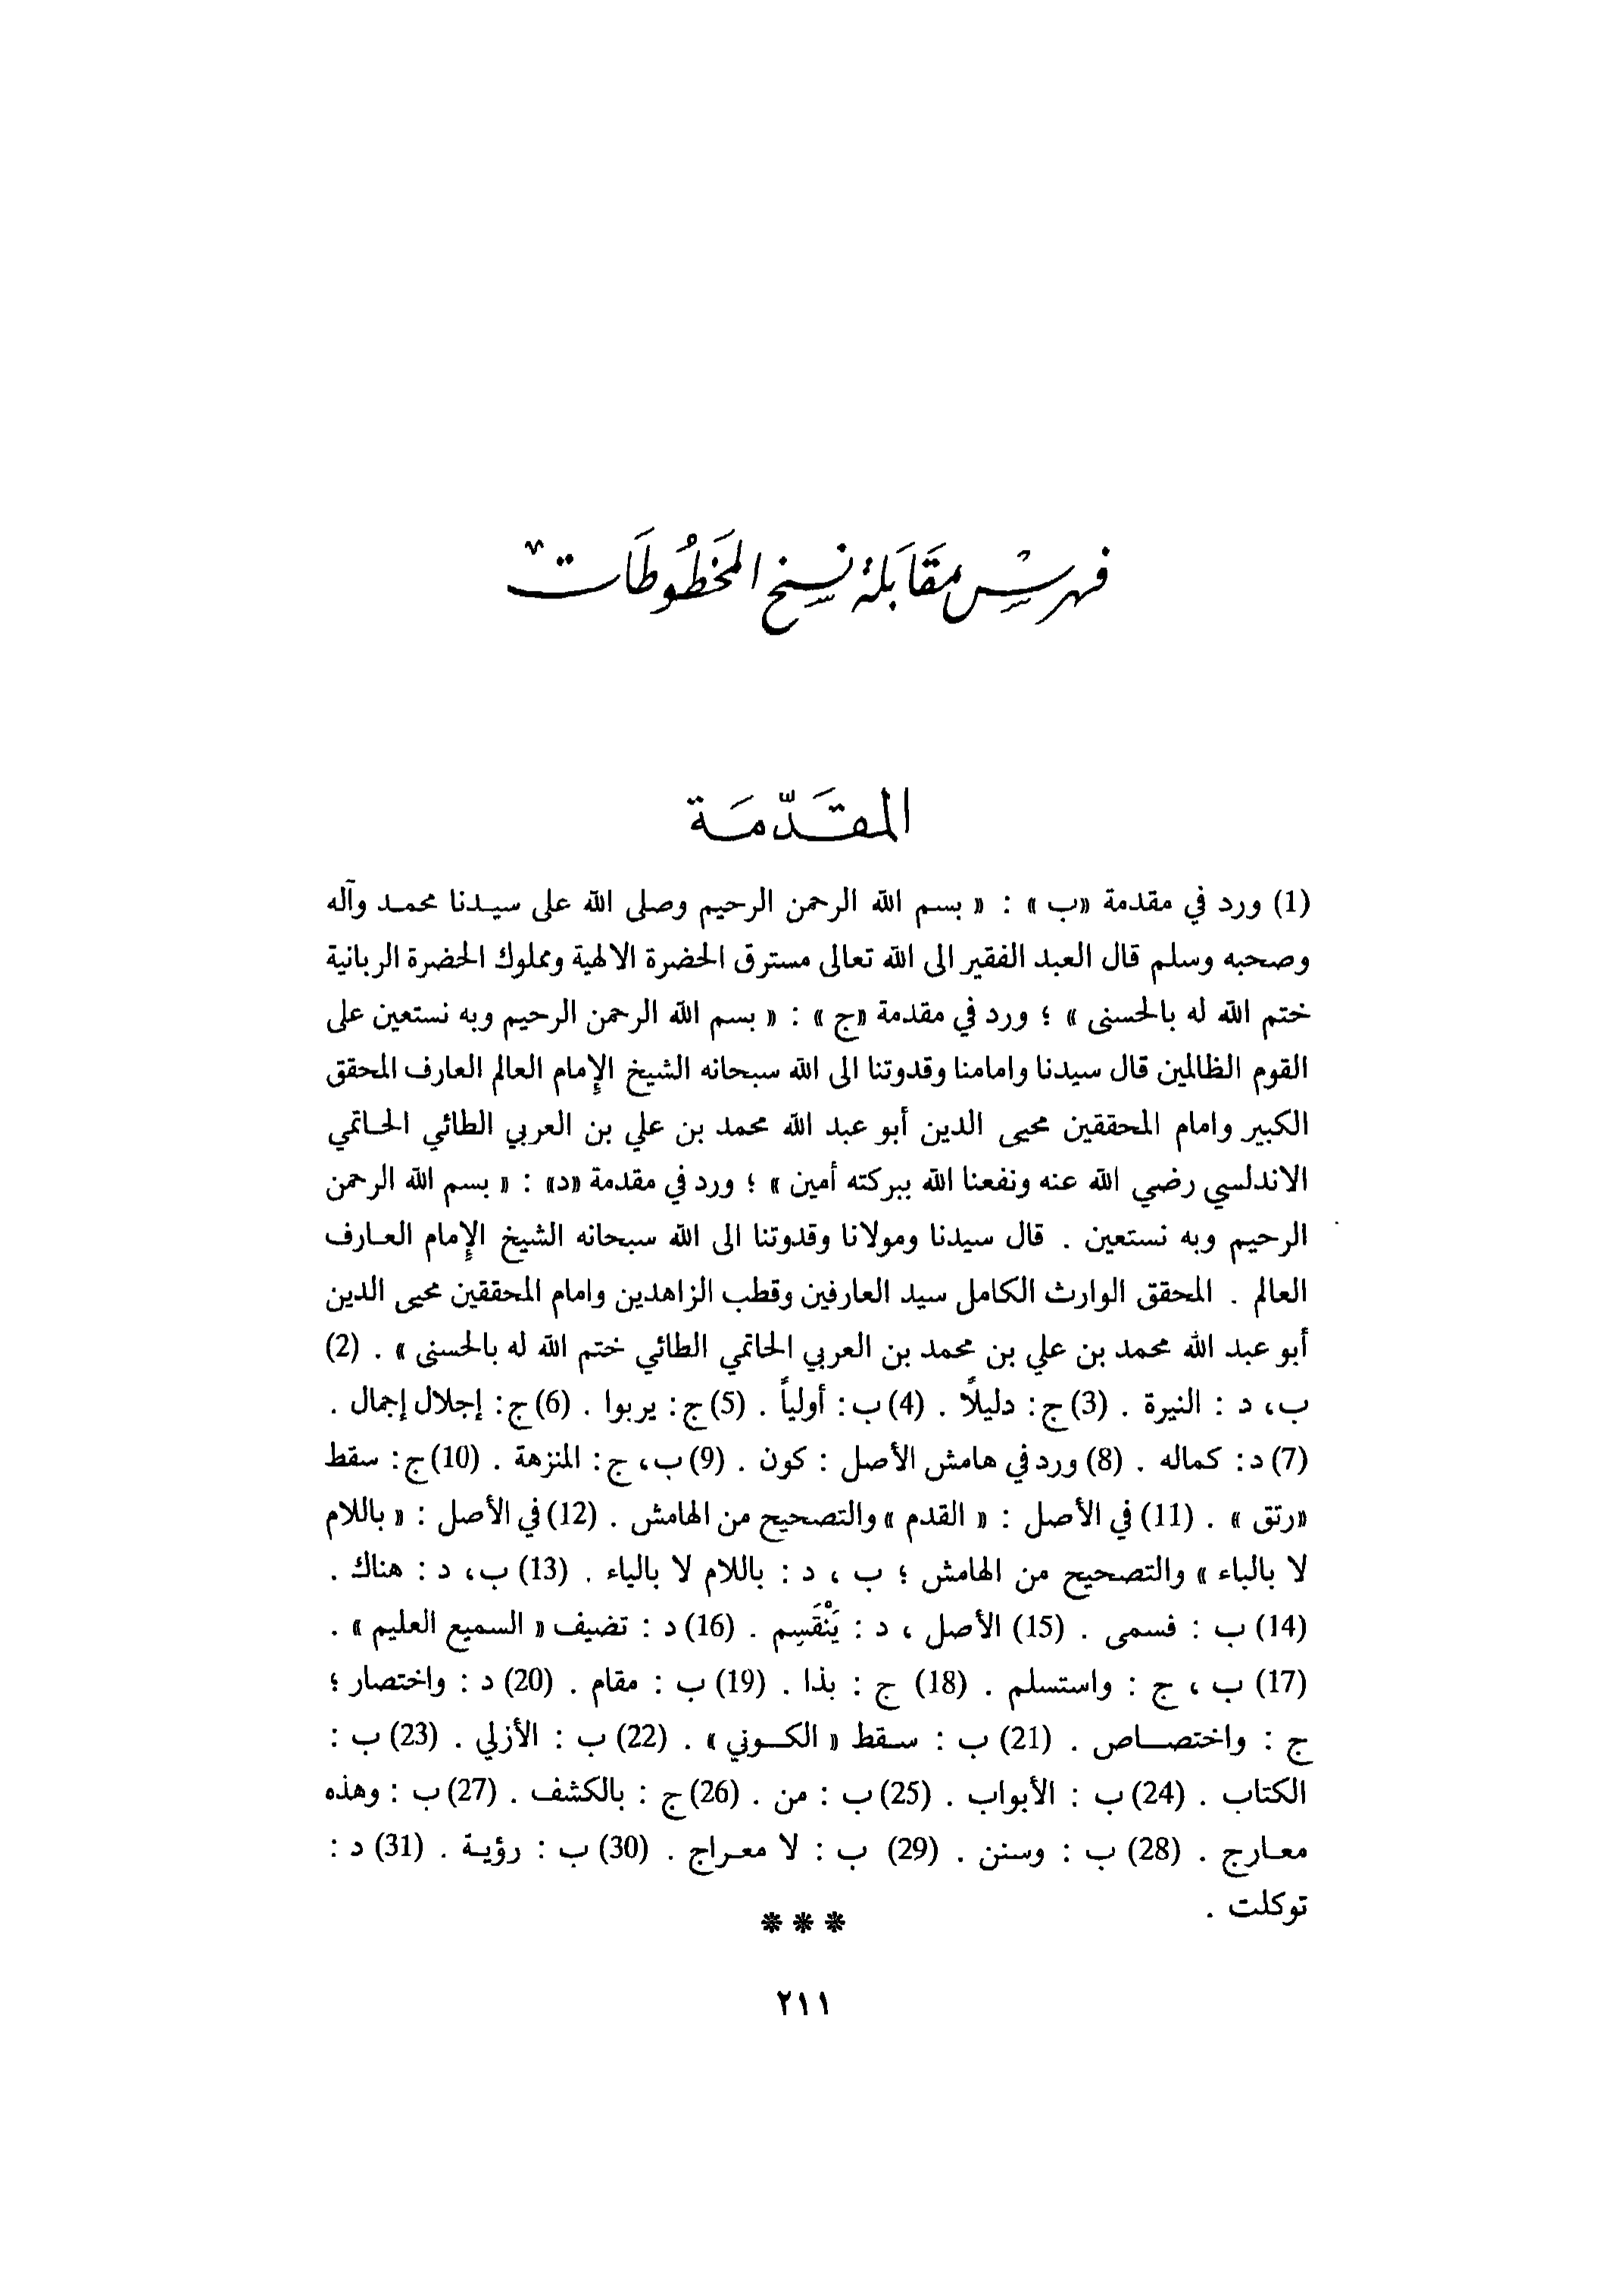 فهرس مقابلة نسخ المخطوطات
المقدمة
(1) ورد في مقدمة «ب» : « بسم الله الرحمن الرحيم وصلى الله على سيدنا محمد وآله
وصحبه وسلم قال العبد الفقير الى الله تعالى مسترق الحضرة الالهية ومملوك الحضرة الربانية
ختم الله له بالحسنى » ؛ ورد في مقدمة «ج » : « بسم الله الرحمن الرحيم وبه نستعين على
القوم الظالمين قال سيدنا وامامنا وقدوتنا الى الله سبحانه الشيخ الإمام العالم العارف المحقق
الكبير وامام المحققين محيى الدين أبو عبد الله محمد بن علي بن العربي الطائي الحاتمي
الاندلسي رضي الله عنه ونفعنا الله ببركته أمين » ؛ ورد في مقدمة «د» : « بسم الله الرحمن
الرحيم وبه نستعين . قال سيدنا ومولانا وقدوتنا الى الله سبحانه الشيخ الإمام العارف
العالم . المحقق الوارث الكامل سيد العارفين وقطب الزاهدين وامام المحققين محيى الدين
أبو عبد الله محمد بن علي بن محمد بن العربي الحاتمي الطائي ختم الله له بالحسنى » . (2)
ب، د : النيرة . (3) ج : دليلاً . (4) ب : أولياً . (5) ج : يربوا . (6) ج : إجلال إجمال .
(7) د : كماله . (8) ورد في هامش الأصل : كون . (9) ب، ج : المنزهة . (10) ج : سقط
«رتق » . (11) في الأصل : « القدم » والتصحيح من الهامش . (12) في الأصل : « باللام
لا بالباء » والتصحيح من الهامش ؛ ب ، د : باللام لا بالياء . (13) ب، د : هناك .
(14) ب : فسمى . (15) الأصل ، د : يَنْقَسِم . (16) د : تضيف « السميع العليم » .
(17) ب ، ج : واستسلم . (18) ج : بذا . (19) ب : مقام . (20) د : واختصار ؛
ج : واختصاص . (21) ب : سقط « الكوني » . (22) ب : الأزلي . (23) ب :
الكتاب . (24) ب : الأبواب . (25) ب : من . (26) ج : بالكشف . (27) ب : وهذه
معارج . (28) ب : وسنن . (29) ب : لا معراج . (30) ب : رؤية . (31) د :
توكلت .
***
٢١١